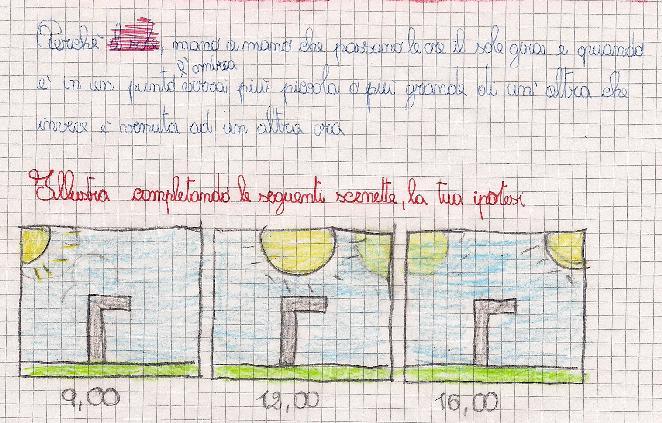 Perchè mano a mano che passano le ore il sole gira e quando
l'ombra
è in un punto sarai più piccola o più grande di un'altra che
invece è venuta ad un altra ora
Illustra completando le seguenti scenette, la tua ipotesi
9,00 12,00 16,00